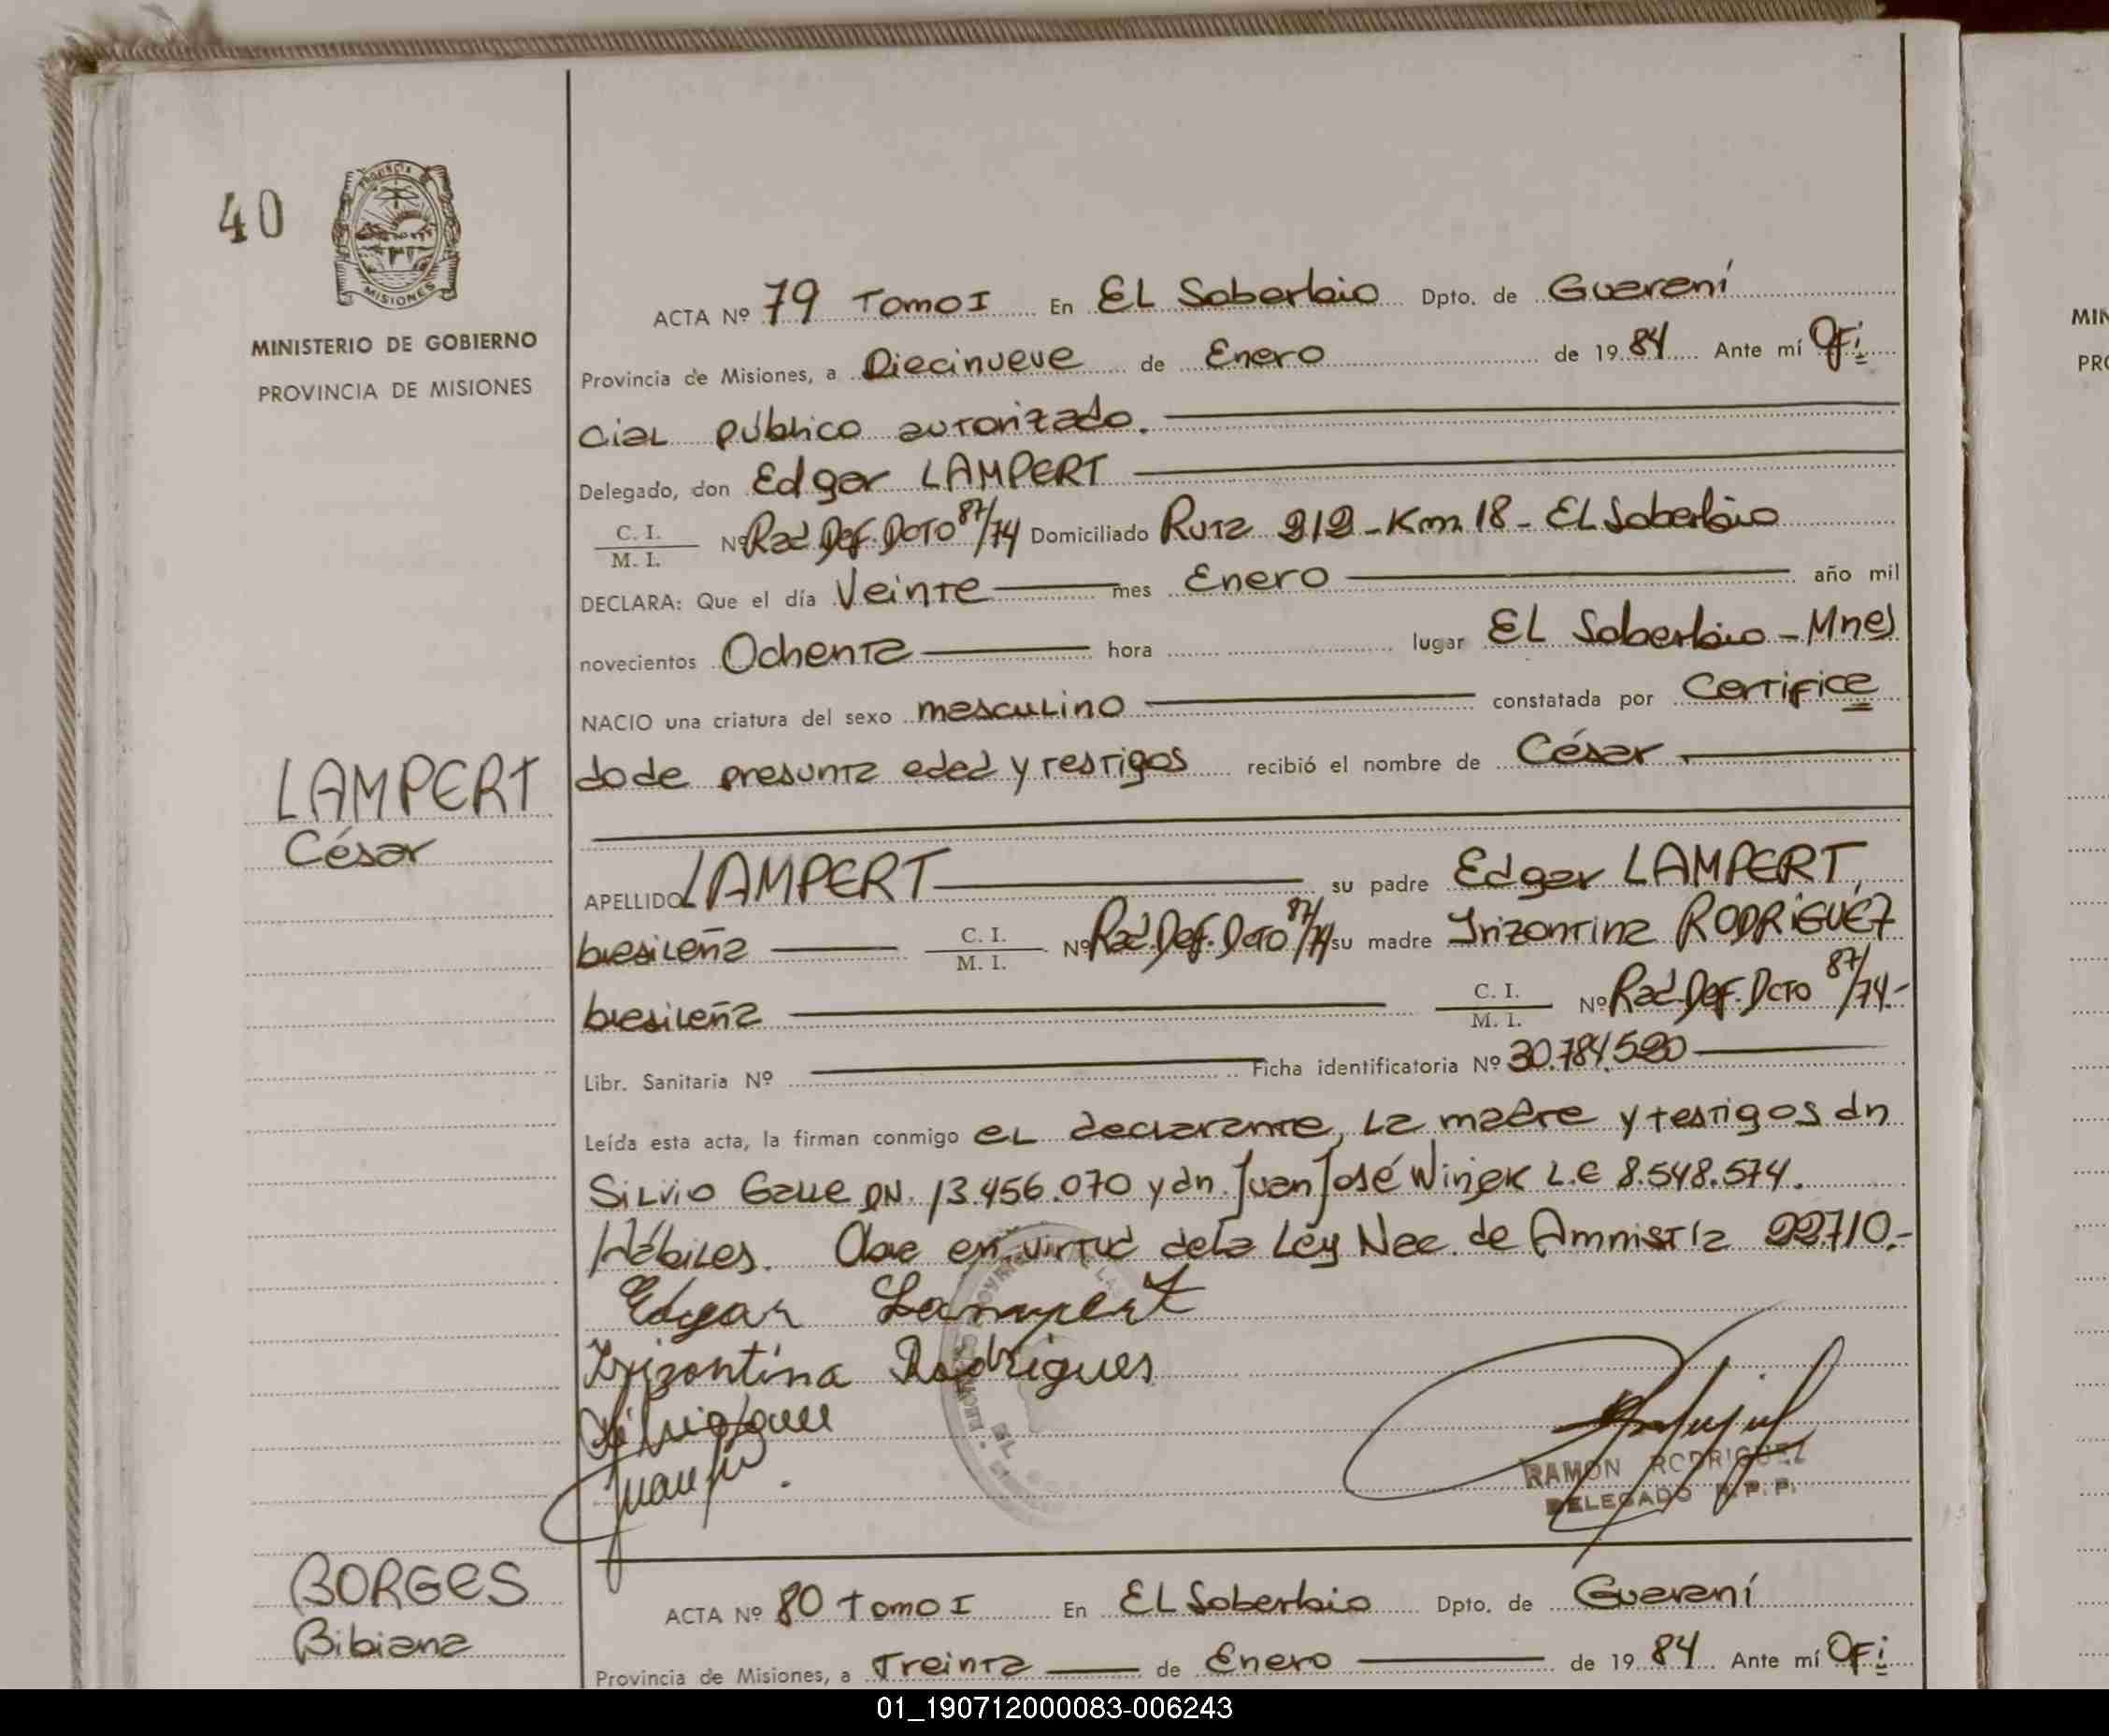 40
PROVINCIA
MISIONES
MINISTERIO DE GOBIERNO
PROVINCIA DE MISIONES
ACTA Nº 79 Tomo I En EL Soberbio Dpto. de Guaraní
Provincia de Misiones, a Diecinueve de Enero de 19 84 Ante mí Ofi
cial público autorizado.
Delegado, don Edgar LAMPERT
C. I.
M. I. Nº Rad. Def. Dcto 87/74 Domiciliado Ruta 212 - Km 18 - EL Soberbio
DECLARA: Que el día Veinte mes Enero año mil
novecientos Ochenta hora lugar EL Soberbio - Mnes
NACIO una criatura del sexo masculino constatada por Certifica
do de presunta edad y testigos recibió el nombre de César
LAMPERT
César
APELLIDO LAMPERT su padre Edgar LAMPERT,
brasileña C. I.
M. I. Nº Rad. Def. Dcto 87/74 su madre Irizontina RODRIGUEZ
brasileña C. I.
M. I. Nº Rad. Def. Dcto 87/74.-
Libr. Sanitaria Nº Ficha identificatoria Nº 30.784.520
Leída esta acta, la firman conmigo el declarante, la madre y testigos dn
Silvio Galle DN. 13.456.070 y dn. Juan José Winek L.E 8.548.574.
Hábiles. Obra en virtud de la Ley Nac. de Amnistía 22710.-
Edgar Lampert
Irizontina Rodrigues
RAMON RODRIGUEZ
DELEGADO R. P. P.
BORGES
Bibiana
ACTA Nº 80 Tomo I En EL Soberbio Dpto. de Guaraní
Provincia de Misiones, a Treinta de Enero de 19 84 Ante mí Ofi
MIN
PRO
01_190712000083-006243